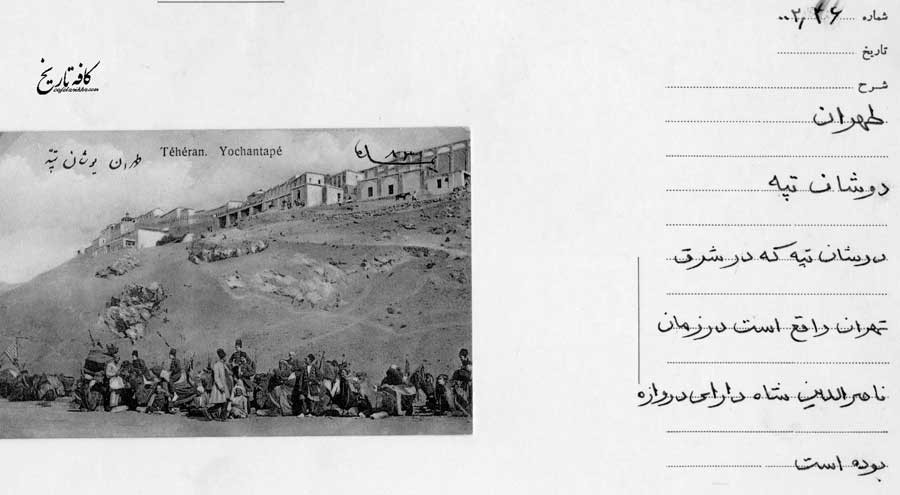 کافه تاریخ
cafetarikh.com
Téhéran. Yochantapé
طهران یوشان تپه
شماره ۰۰۲,۳۶
تاریخ
شرح
طهران
دوشان تپه
دوشان تپه که در شرق
تهران واقع است در زمان
ناصرالدین شاه دارای دروازه
بوده است